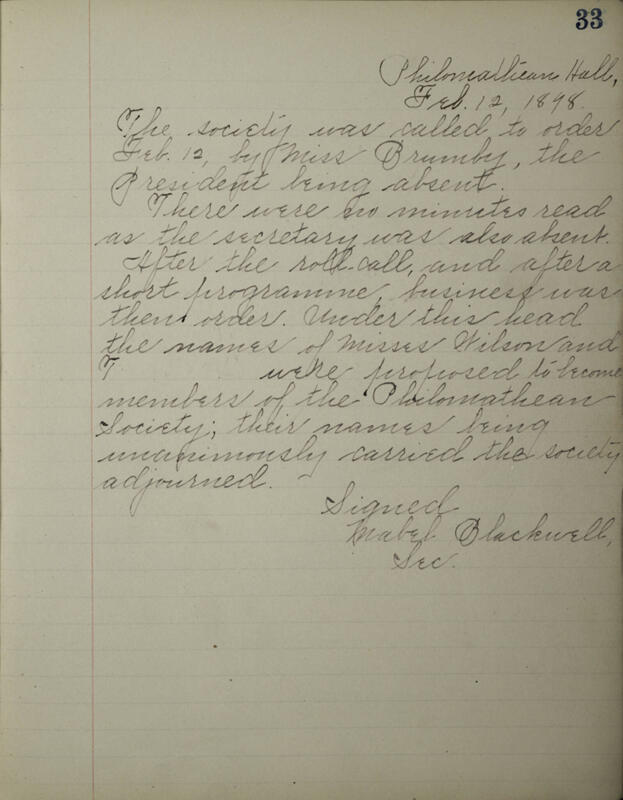 33
Philomathean Hall,
Feb. 12, 1898.
The society was called to order
Feb. 12, by Miss Brumby, the
President being absent.
There were no minutes read
as the secretary was also absent.
After the roll call, and after a
short programme, business was
then order. Under this head
the names of Misses Wilson and
T were proposed to become
members of the Philomathean
Society; their names being
unanimously carried the society
adjourned.
Signed
Mabel Blackwell,
Sec.